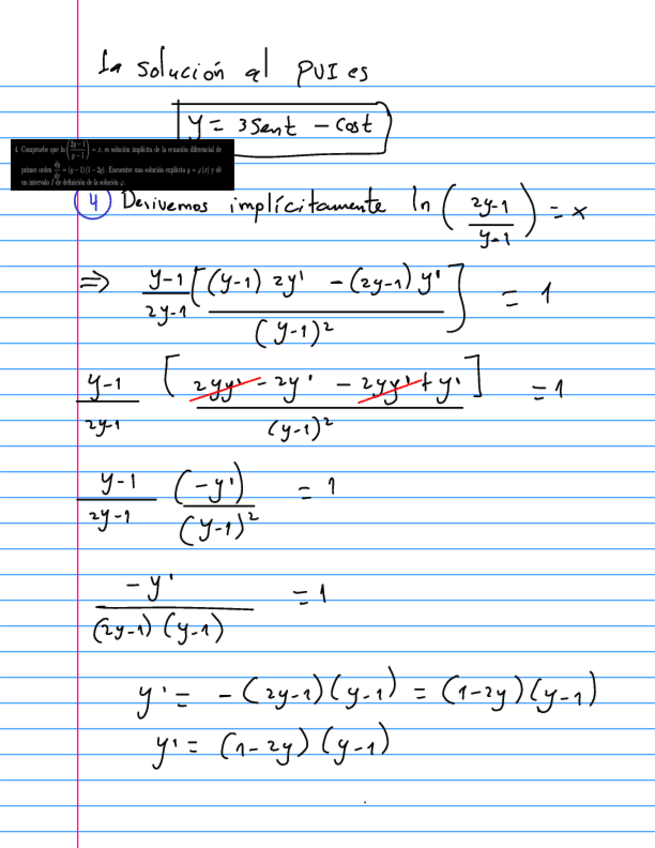 La solución al PVI es
y = 3 Sent - Cost
4. Compruebe que ln(2y-1/y-1) = x, es solución implícita de la ecuación diferencial de
primer orden dy/dx = (y-1)(1-2y). Encuentre una solución explícita y = φ(x) y dé
un intervalo I de definición de la solución φ.
4 Derivemos implícitamente ln(2y-1/y-1) = x
⇒ y-1/2y-1 [(y-1) 2y' - (2y-1) y'/(y-1)²] = 1
y-1/2y-1 [2yy' - 2y' - 2yy' + y'/(y-1)²] = 1
y-1/2y-1 (-y')/(y-1)² = 1
-y'/(2y-1)(y-1) = 1
y' = -(2y-1)(y-1) = (1-2y)(y-1)
y' = (1-2y)(y-1)